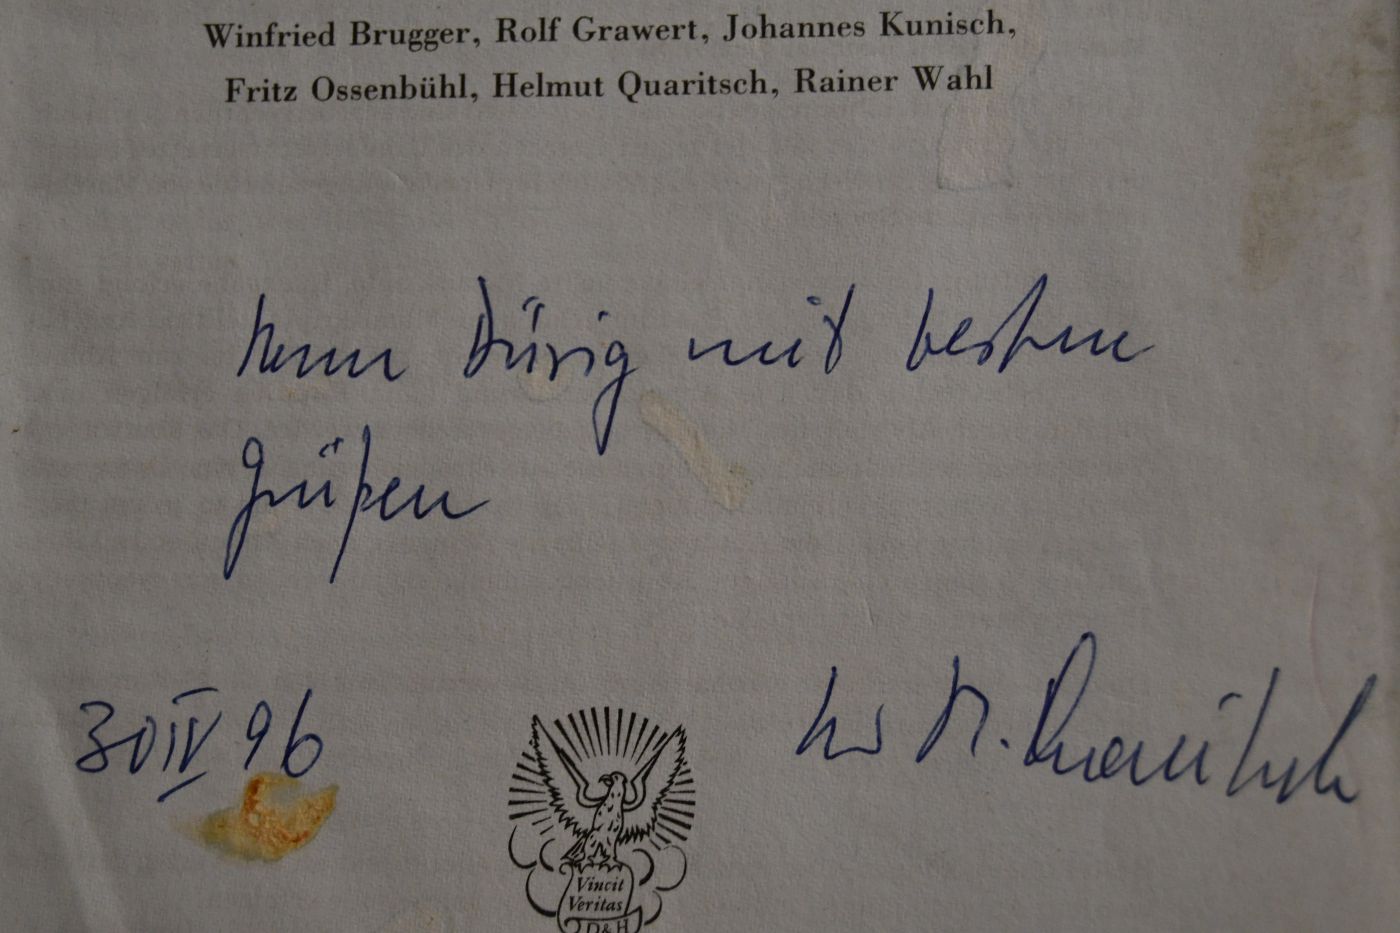 Winfried Brugger, Rolf Grawert, Johannes Kunisch,
Fritz Ossenbühl, Helmut Quaritsch, Rainer Wahl
Herrn Dürig mit besten
Grüßen
30 IV 96
Ihr H. Quaritsch
Vincit
Veritas
D & H